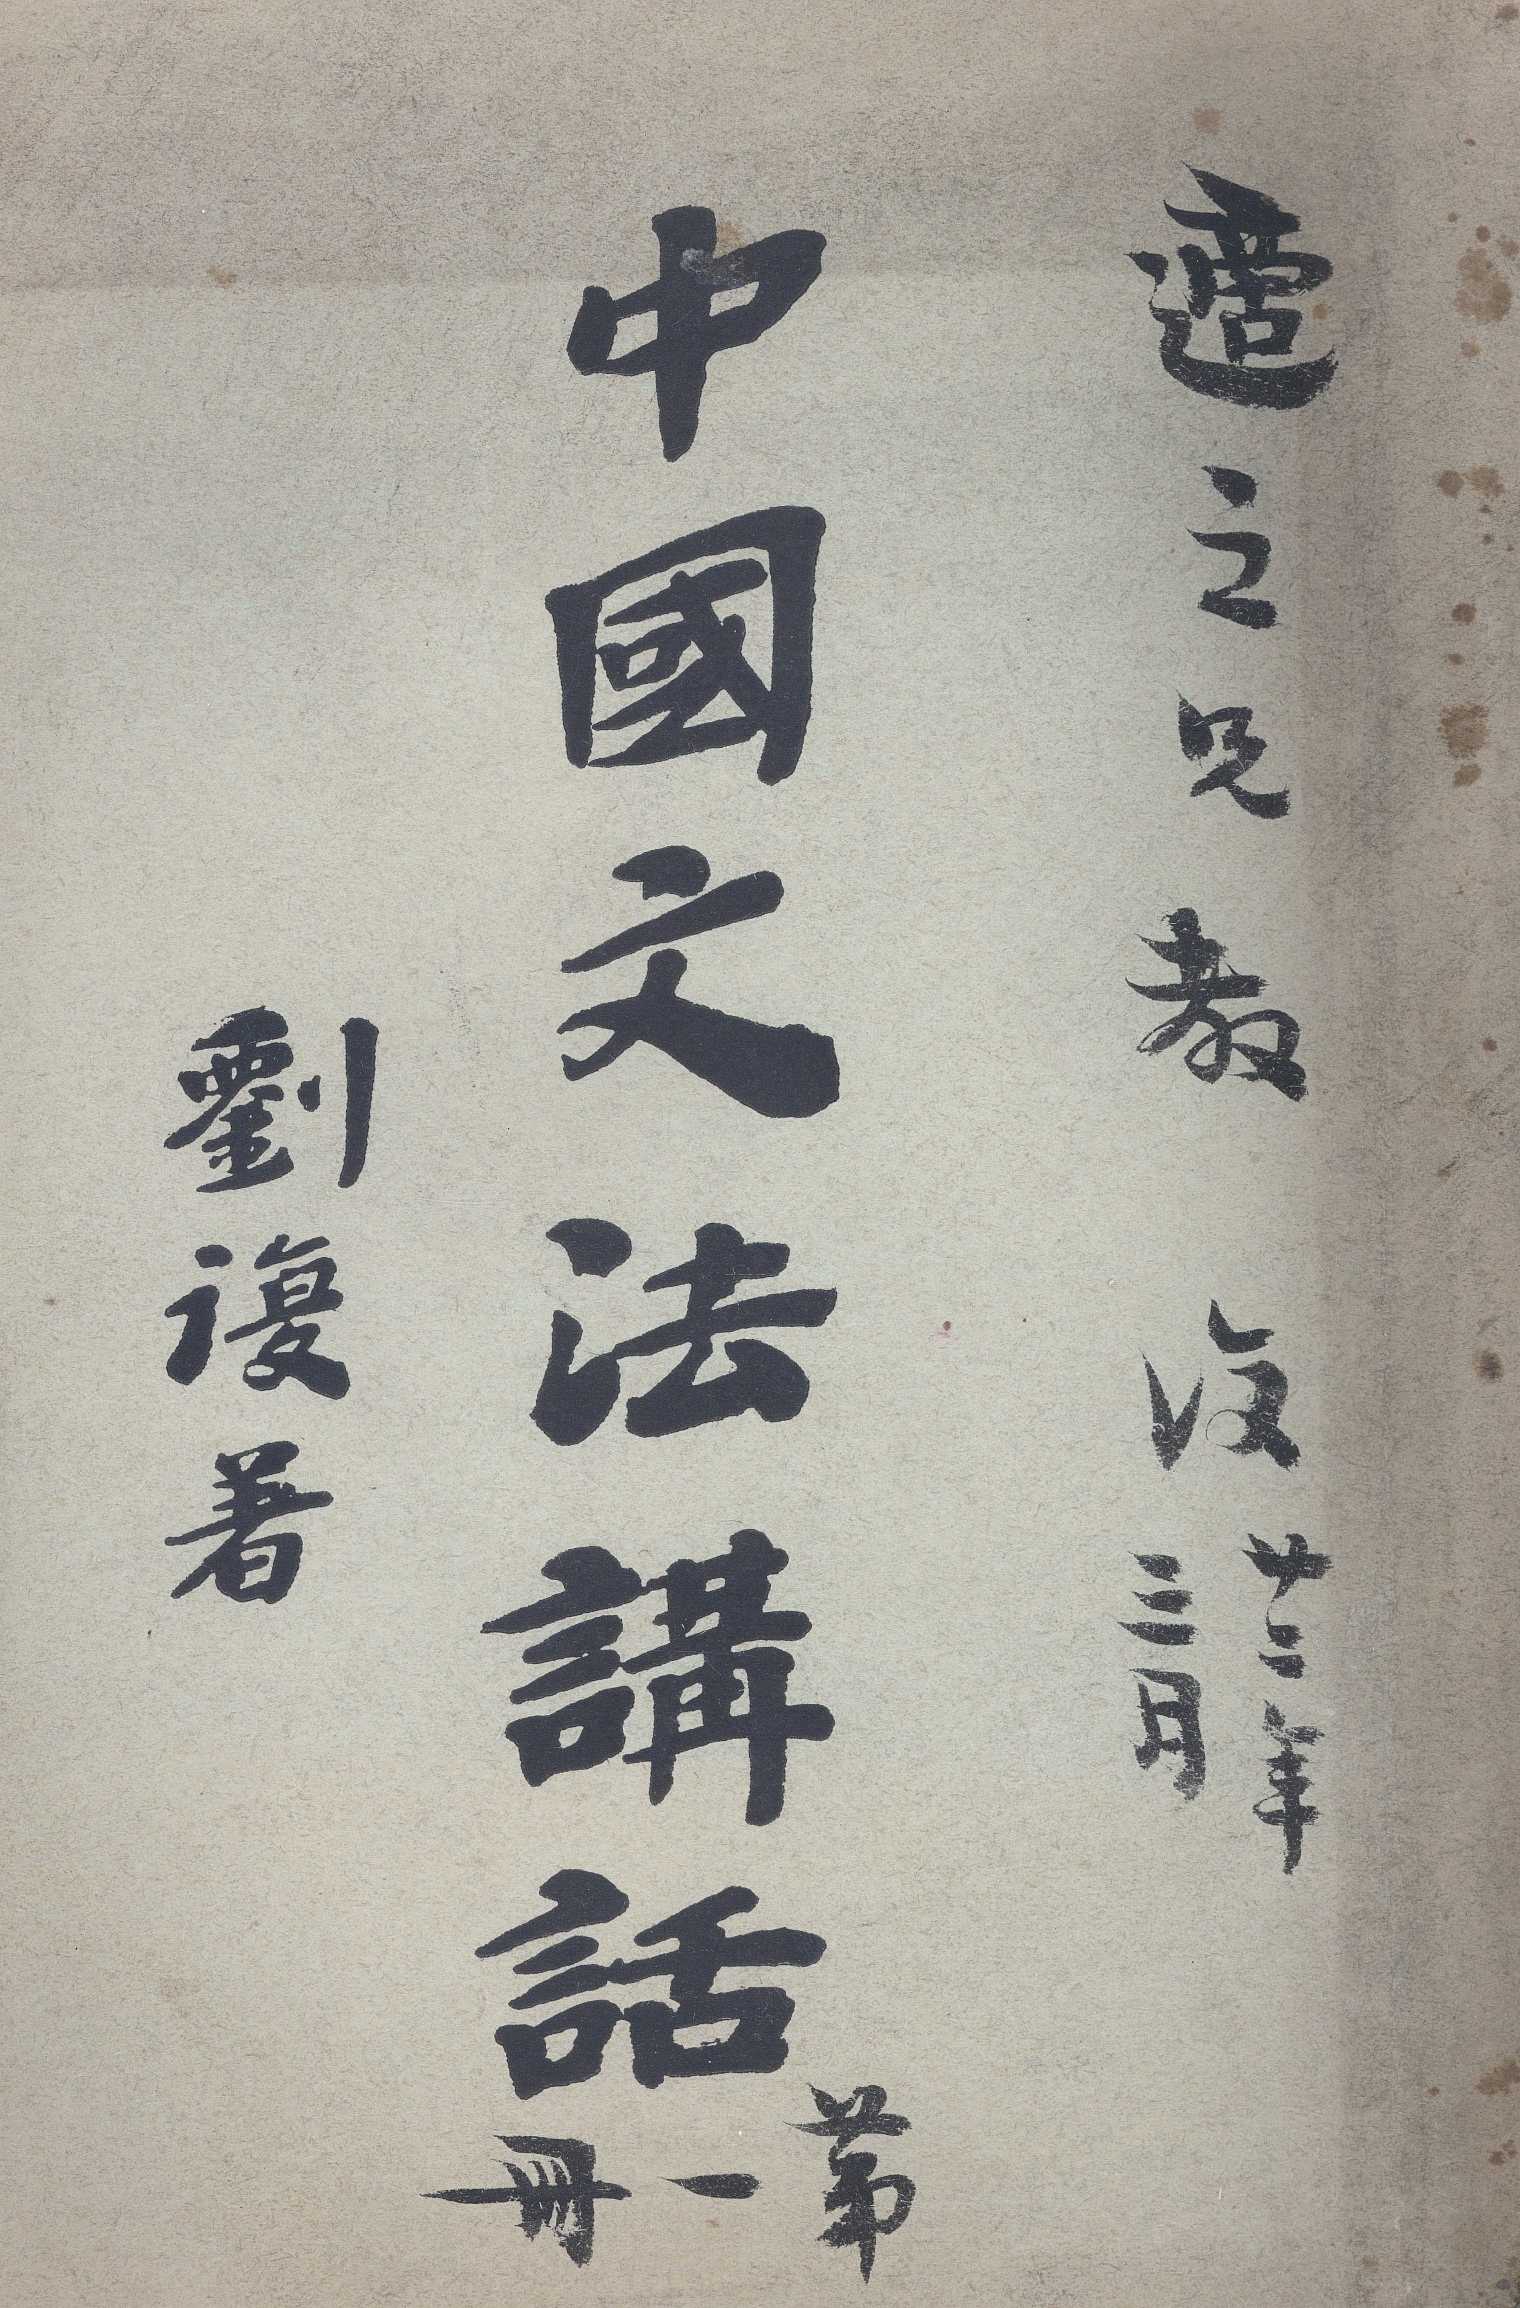 適之兄教 復 廿二年
三月
中國文法講話
第一冊
劉復著